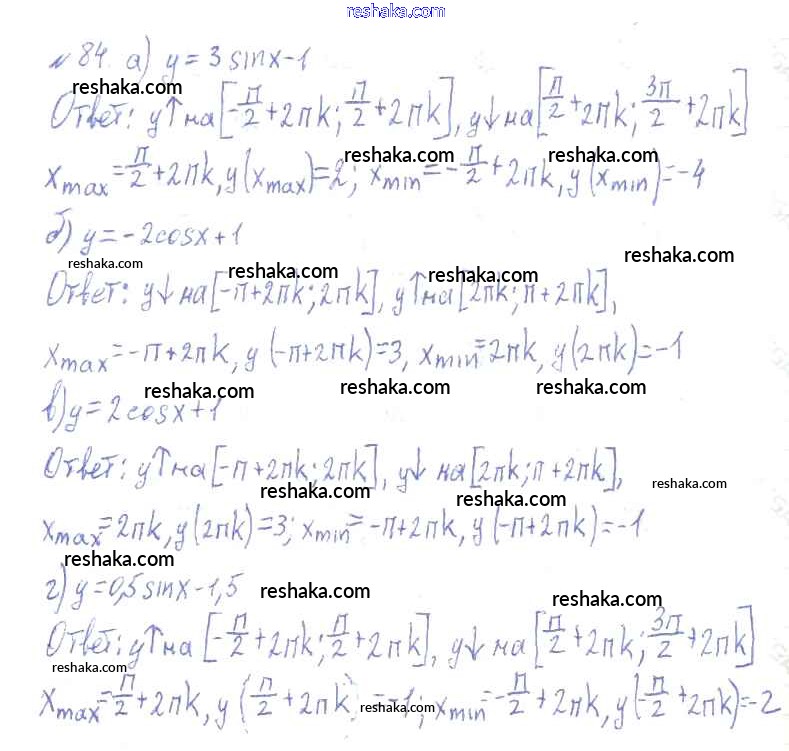 reshaka.com
№84. а) y = 3 sinx-1
reshaka.com
Ответ: y↑ на [-π/2+2πk; π/2+2πk], y↓ на [π/2+2πk; 3π/2+2πk]
reshaka.com reshaka.com
xmax=π/2+2πk, y(xmax)=2; xmin=-π/2+2πk, y(xmin)=-4
б) y=-2cosx+1
reshaka.com reshaka.com reshaka.com reshaka.com
Ответ: y↓ на [-π+2πk; 2πk], y↑ на [2πk; π+2πk],
xmax=-π+2πk, y(-π+2πk)=3, xmin=2πk, y(2πk)=-1
reshaka.com reshaka.com reshaka.com
в) y=2cosx+1
Ответ: y↑ на [-π+2πk; 2πk], y↓ на [2πk; π+2πk],
reshaka.com reshaka.com reshaka.com
xmax=2πk, y(2πk)=3; xmin=-π+2πk, y(-π+2πk)=-1
reshaka.com
г) y=0,5sinx-1,5
reshaka.com reshaka.com
Ответ: y↑ на [-π/2+2πk; π/2+2πk], y↓ на [π/2+2πk; 3π/2+2πk]
reshaka.com
xmax=π/2+2πk, y(π/2+2πk)=-1; xmin=-π/2+2πk, y(-π/2+2πk)=-2
reshaka.com